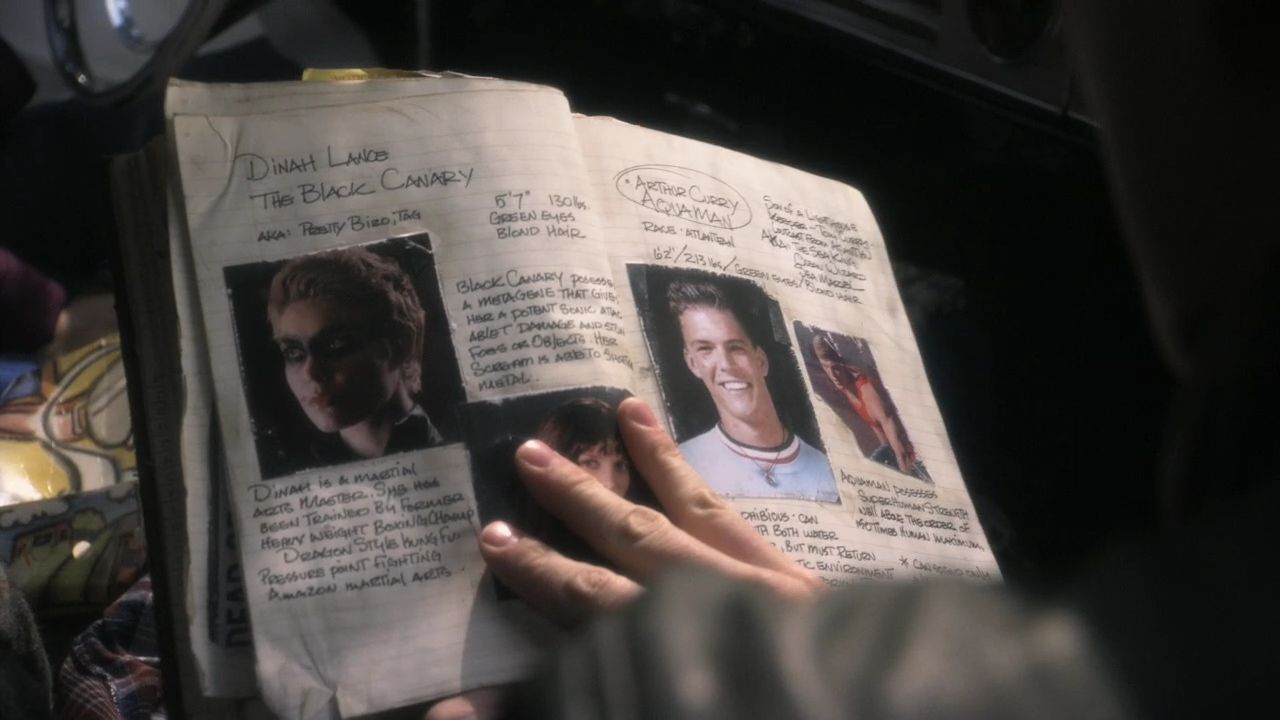 DINAH LANCE
THE BLACK CANARY
AKA: PRETTY BIRD, TAG
5'7" 130lbs.
GREEN EYES
BLOND HAIR
BLACK CANARY POSSESS
A METAGENE THAT GIVES
HER A POTENT SONIC ATTAC
ABLET DAMAGE AND STUN
FOES OR OBJECTS. HER
SCREAM IS ABLE TO
METAL.
DINAH IS A MARTIAL
ARTS MASTER. SHE HAS
BEEN TRAINED BY FORMER
HEAVY WEIGHT BOXING CHAMP
DRAGON STYLE KUNG FU.
PRESSURE POINT FIGHTING
AMAZON MARTIAL ARTS.
DEAD
* ARTHUR CURRY
AQUAMAN
RACE: ATLANTEAN
6'2"/213 lbs/GREEN EYES/BLOND HAIR
SON OF A LIGHTHOUSE
KEEPER - TOM CURRY
FROM ATLANTIS
AKA: THE SEA KING
AQUAMAN POSSESSES
SUPERHUMAN STRENGTH
WELL ABOVE THE ORDER OF
150 TIMES HUMAN MAXIMUM.
PHIBIOUS · CAN
TH BOTH WATER
, BUT MUST RETURN
TIC ENVIRONMENT
* CAN